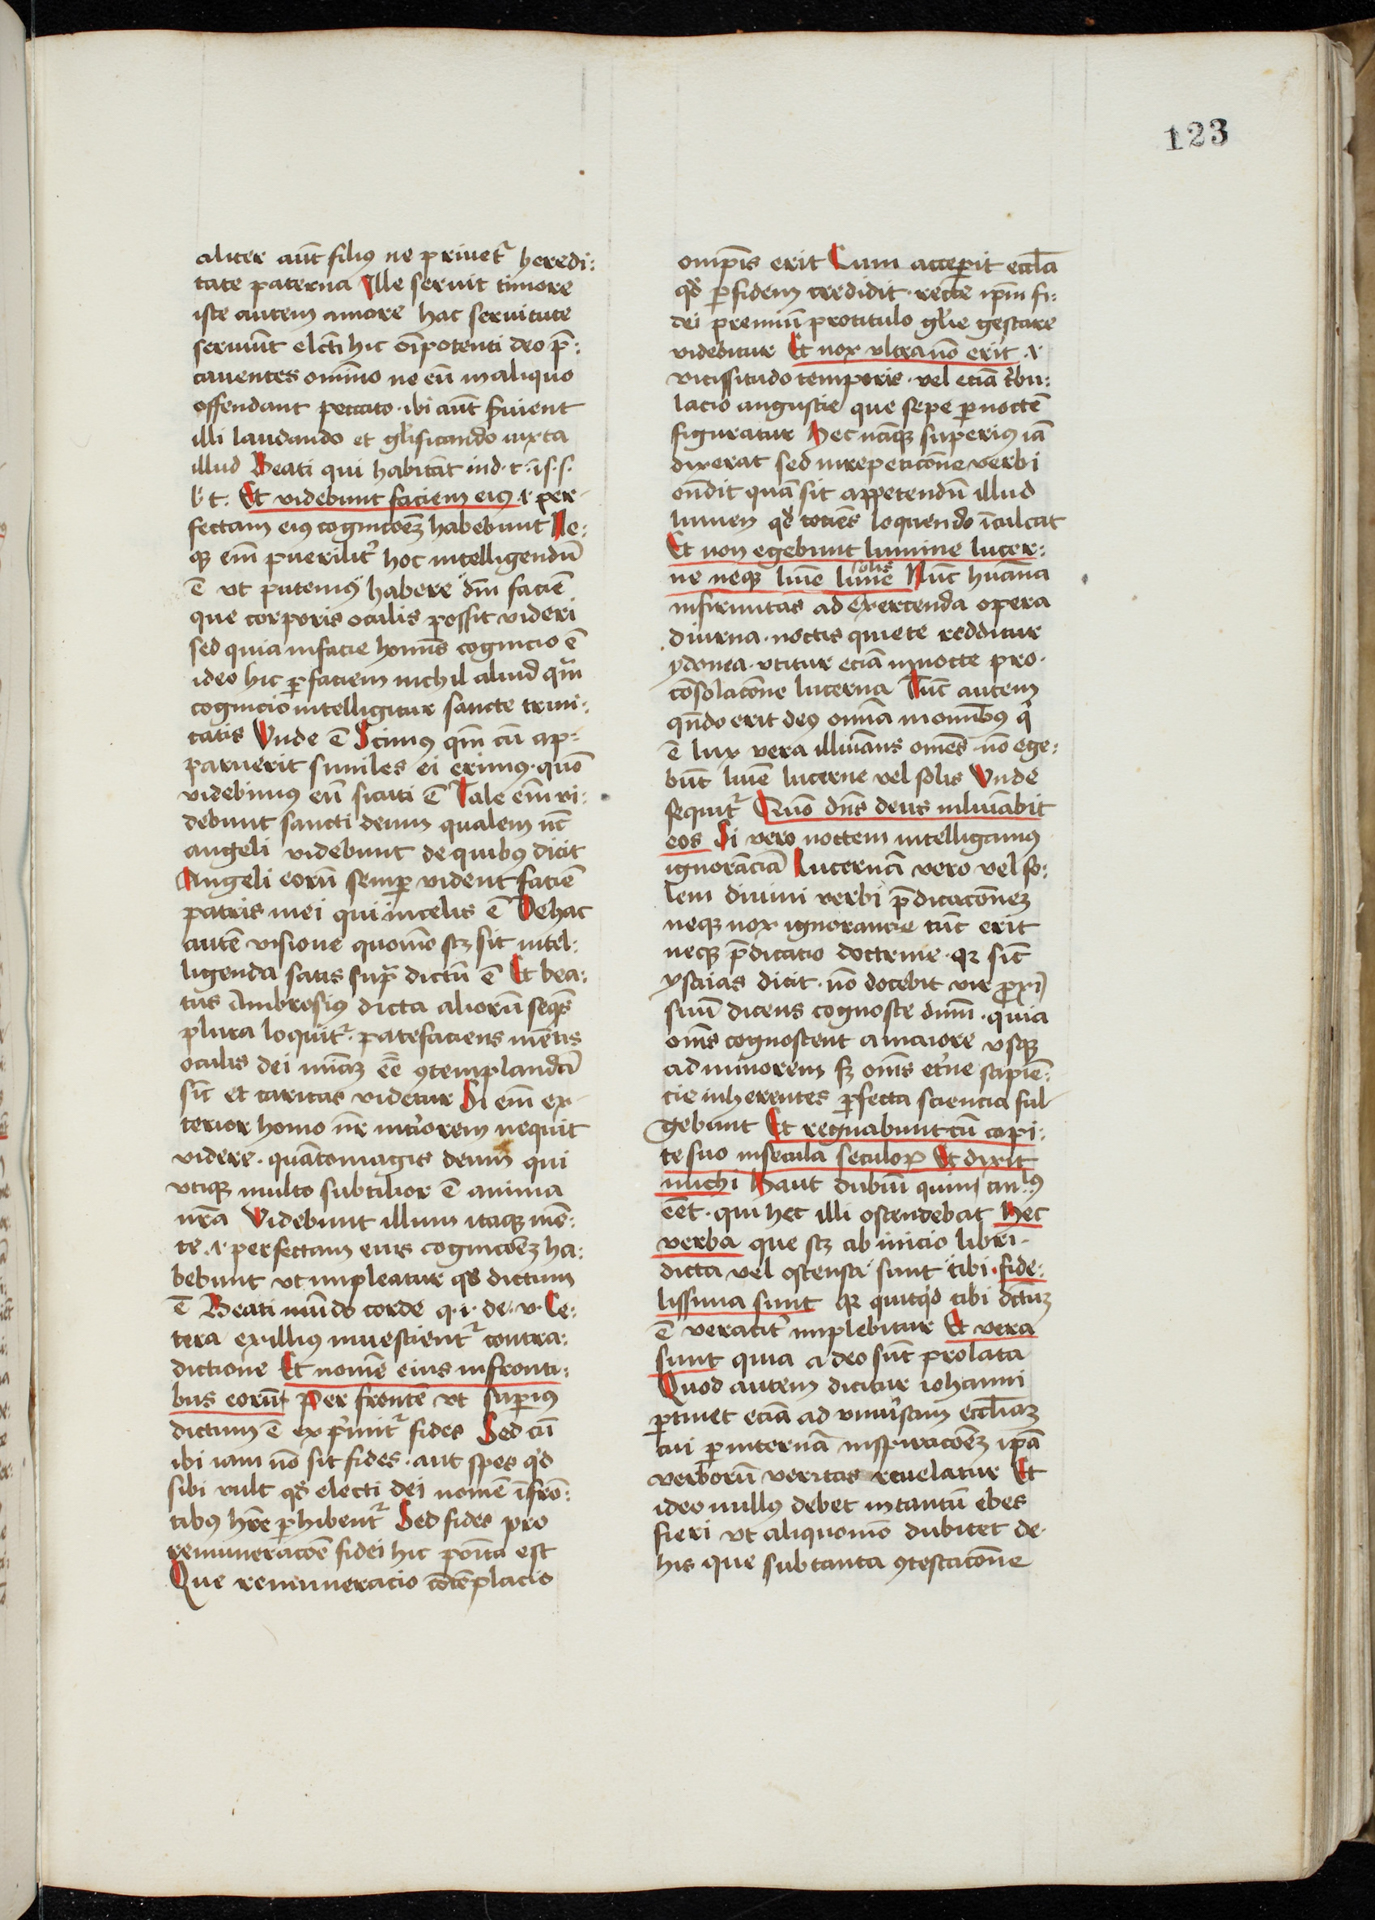 123
aliter aut̄ filiꝰ ne priuet᷑ heredi:
tate paterna Ille seruit timore
iste autem amore hac seruitute
seruiūt elc̄ti hic om̄ipotenti deo p̄:
cauentes omnino ne eū in aliquo
offendant peccato · ibi aut̄ ẜuient
illi laudando et gl̄ificando iuxta
illud Beati qui habitāt in d · t · i s · s ·
l · t · Et videbunt faciem eiꝰ · i · per
fectam eiꝰ cognicōeꝫ habebunt Ne:
qꝫ em̄ pueriliẗ hoc intelligendū
ē vt putemꝰ habere dm̄ faciē
que corporis oculis possit videri
sed quia in facie homīs cognicio ē
ideo hic ꝑ faciem nichil aliud qm̄
cognicio intelligitur sancte trini:
tatis Vnde ē Scimꝰ qm̄ cū ap:
paruerit similes ei erimꝰ · quō
videbimꝰ eū sicuti ē Tale em̄ vi:
debunt sancti deum qualem nūc
angeli videbunt de quibꝰ dicit
Angeli eorū semꝑ vident faciē
patris mei qui in celis ē De hac
autē visione quomō scꝫ sit intel:
ligenda satis sup̄ dictū ē Et bea:
tus Ambrosiꝰ dicta aliorū seqn̄s
plura loquit᷑ · patefaciens mētis
oculis dei n̄ꝫ eē ꝯtemplandā
sic̄ et caritas videtur Si em̄ ex
terior homo nr̄ int̾iorem nequit
videre · quātomagis deum qui
vtiqꝫ multo subtilior ē anima
nr̄a Videbunt illum itaqꝫ mē:
te · i · perfectam eius cognicōeꝫ ha:
bebunt vt impleatur qd̄ dictum
ē Beati mūdo corde q · i · de · v · Ce:
tera ex illiꝰ inuestient᷑ contra:
dictione Et nomē eius in fronti:
bus eorūt Per frontē vt suꝑius
dictum ē exp̾mit᷑ fides Sed cū
ibi iam nō sit fides · aut spes qd̄
sibi vult qd̄ electi dei nomē ī frō:
tibꝰ hr̄e ꝑhibent᷑ Sed fides pro
remuneracōe fidei hic poīta est
Que remuneracio cōtēplacio
omp̄is erit Cum acceperit eccl̄a
qd̄ ꝑ fidem credidit · recte ip̄m fi:
dei premiū pro titulo gl̄ie gestare
videbitur Et nox vltra nō erit · i ·
vicissitudo temporis · vel eciā t̾bu:
lacio angustie que sepe ꝑ noctē
figuratur Hec nāqꝫ superiꝰ iā
dixerat sed in repeticōne verbi
on̄dit quā sit appetendū illud
lumen qd̄ tociēs loquendo īculcat
Et non egebunt lumine lucer:
ne neqꝫ lūīe lūīe solis Nūc hūāna
infirmitas ad exercenda opera
diurna · noctis quiete redditur
ydonea · vtitur eciā in nocte pro
cōsolacōne lucerna Tūc autem
qn̄do erit deꝰ omīa in omībꝰ q̾
ē lux vera illuīans omēs nō ege:
būt lūīe lucerne vel solis Vnde
sequit᷑ Qm̄o dn̄s deus inluīabit
eos Si vero noctem intelligamus
ignorāciā Lucernā vero vel so:
lem diuini verbi p̄dicacōneꝫ
neqꝫ nox ignorancie tūc erit
neqꝫ p̄dicatio doctrine · qꝛ sic̄
ysaias dicit · nō docebit vir ꝓxī
suū dicens cognosce dn̄m · quia
om̄s cognoscent a maiore vsqꝫ
ad minorem sꝫ om̄s et̾ne sapiē:
cie inherentes ꝑfecta sciencia ful
gebunt Et regnabunt cū capi:
te suo in secula seculoꝝ Et dixit
michi Haut dubiū quin
eēt · qui hec illi ostendebat Hec
verba que scꝫ ab inicio libri
dicta vel ostensa sunt tibi · fide:
lissima sunt qꝛ quitqd̄ tibi dictūꝫ
ē veracit̾ implebitur Et vera
sunt quia a deo sūt prolata
Quod autem dicitur iohanni
ꝑtinet eciā ad vniu̾sam eccl̄iaꝫ
cui ꝑ internā inspiracōeꝫ ip̄a
verborū veritas reuelatur Et
ideo nullꝰ debet in tantū ebes
fieri vt aliquomō dubitet de
his que sub tanta ꝯtestacōne